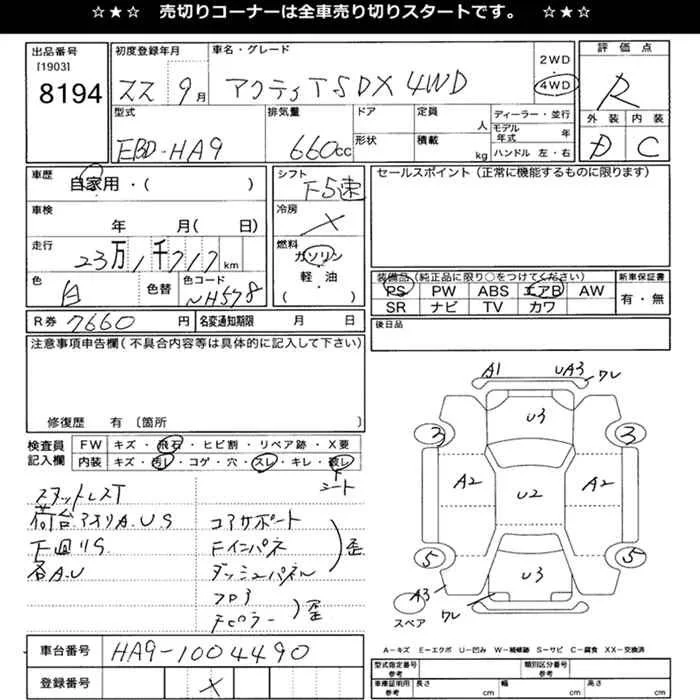 ☆★☆ 売切りコーナーは全車売り切りスタートです。 ☆★☆
出品番号
[1903]
8194
初度登録年月
スス 9月
車名・グレード
アクティT SDX 4WD
2WD
4WD
評価点
R
外装 内装
D C
型式
EBD-HA9
排気量
660cc
ドア
形状
定員
人
積載
kg
ディーラー・並行
モデル年式 年
ハンドル 左・右
車歴
自家用・( )
シフト
F5速
セールスポイント(正常に機能するものに限ります)
車検
年 月( 日)
冷房
×
走行
23万1千717km
燃料
ガソリン
軽・油
( )
色
白
色替
色コード
NH578
装備品(純正品に限り○をつけてください)
新車保証書
PS PW ABS エアB AW
SR ナビ TV カワ
有・無
R券 7660円
名変通知期限 月 日
後日品
注意事項申告欄(不具合内容等は具体的に記入して下さい)
修復歴 有〔箇所 〕
検査員記入欄
FW キズ・飛石・ヒビ割・リペア跡・X要
内装 キズ・汚レ・コゲ・穴・スレ・キレ・破レ
シート
スタットレスT
荷台.アオリA.U.S コアサポート
下回リS Fインパネ 歪
各A.U ダッシュパネル
フロア
Fピラー 歪
A1 UA3 ワレ
U3
3 3
A2 U2 A2
5 5
U3
A3 ワレ
スペア
車台番号 HA9-1004490
登録番号 ×
A-キズ E-エクボ U-凹み W-補修跡 S-サビ C-腐食 XX-交換済
型式指定番号 参考
類別区分番号 参考
車庫証明用 参考
長さ cm 幅 cm 高さ cm